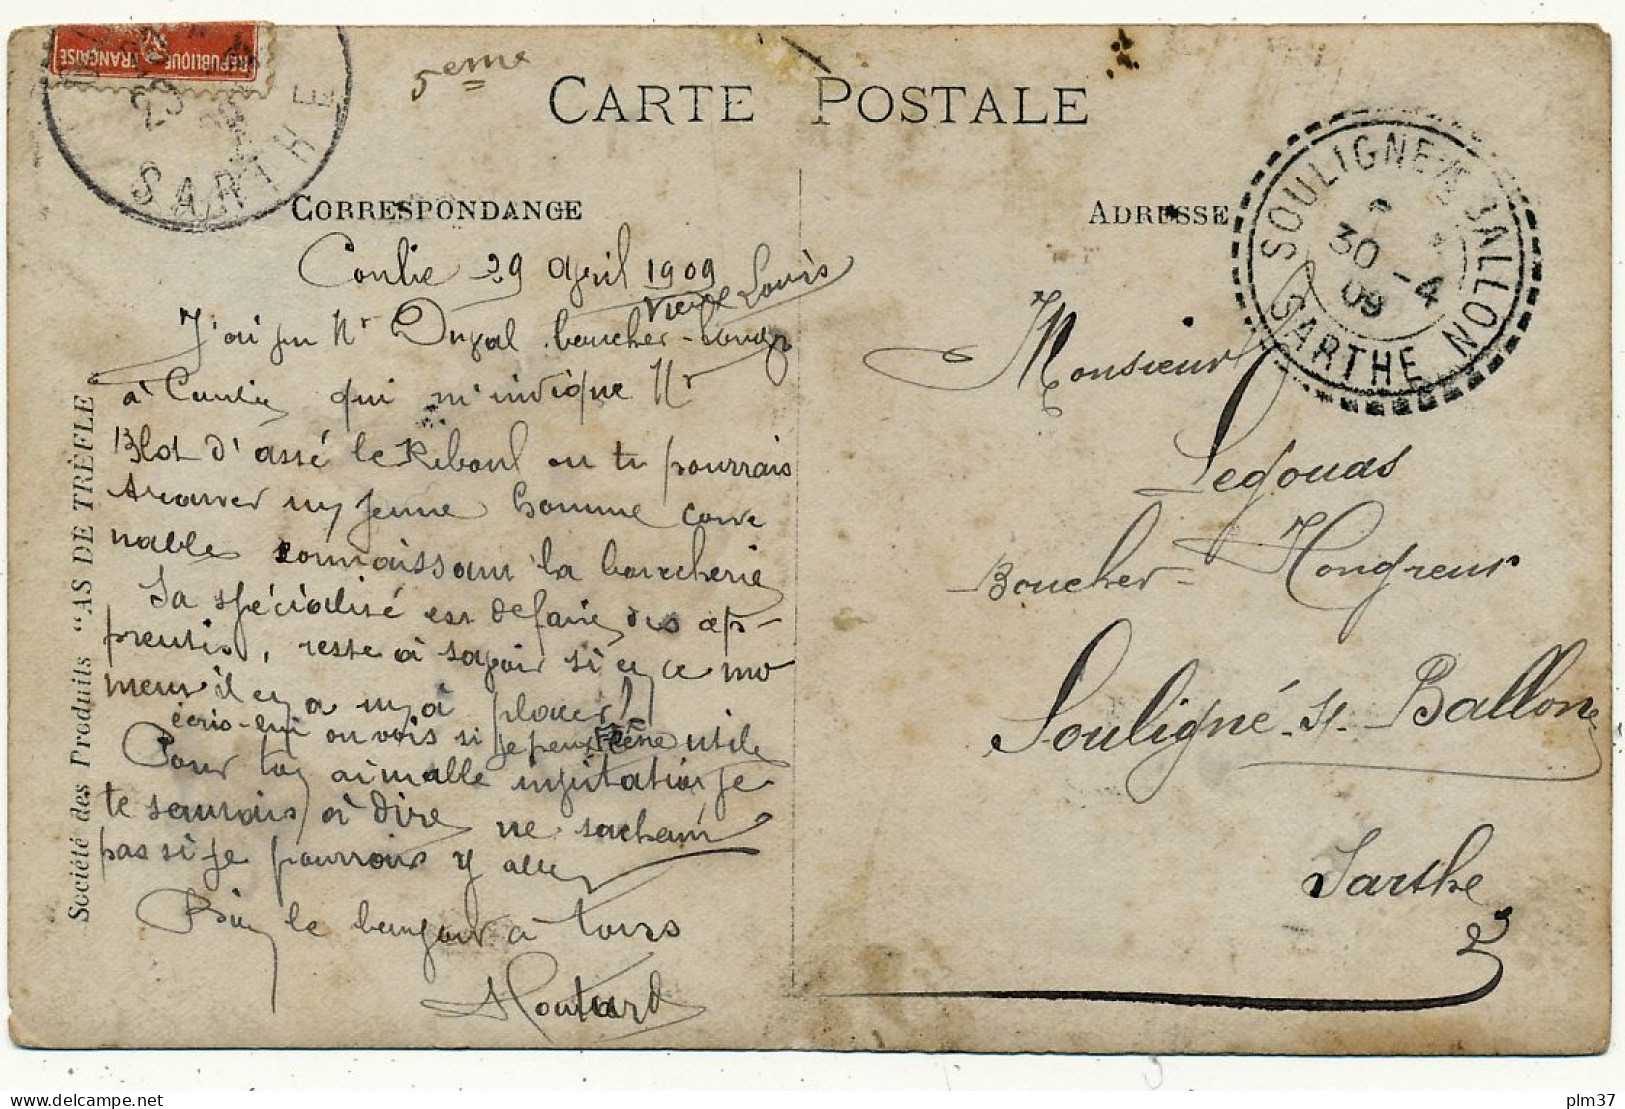 RÉPUBLIQUE FRANÇAISE
SARTHE
5eme
CARTE POSTALE
CORRESPONDANCE
ADRESSE
SOULIGNÉ-S-BALLON
30 -4
09
SARTHE
Société des Produits "AS DE TRÈFLE"
Conlie 29 avril 1909
Vieux Louis
J'ai vu Mr Duval boucher
à Conlie qui m'indique Mr
Blot d'assé le Riboul ou tu pourrais
trouver un jeune homme conve
nable connaissant la boucherie
Sa spécialité est de faire des ap-
prentis, reste à savoir si en ce mo
ment il en a un à placer
écris-lui ou vois si je peux être utile
Pour ton aimable invitation je
te saurais à dire ne sachant
pas si je pourrais y aller
Bien le bonjour à tous
Houtard
Monsieur
Legouas
Boucher - Hongreur
Souligné-s-Ballon
Sarthe
plm37